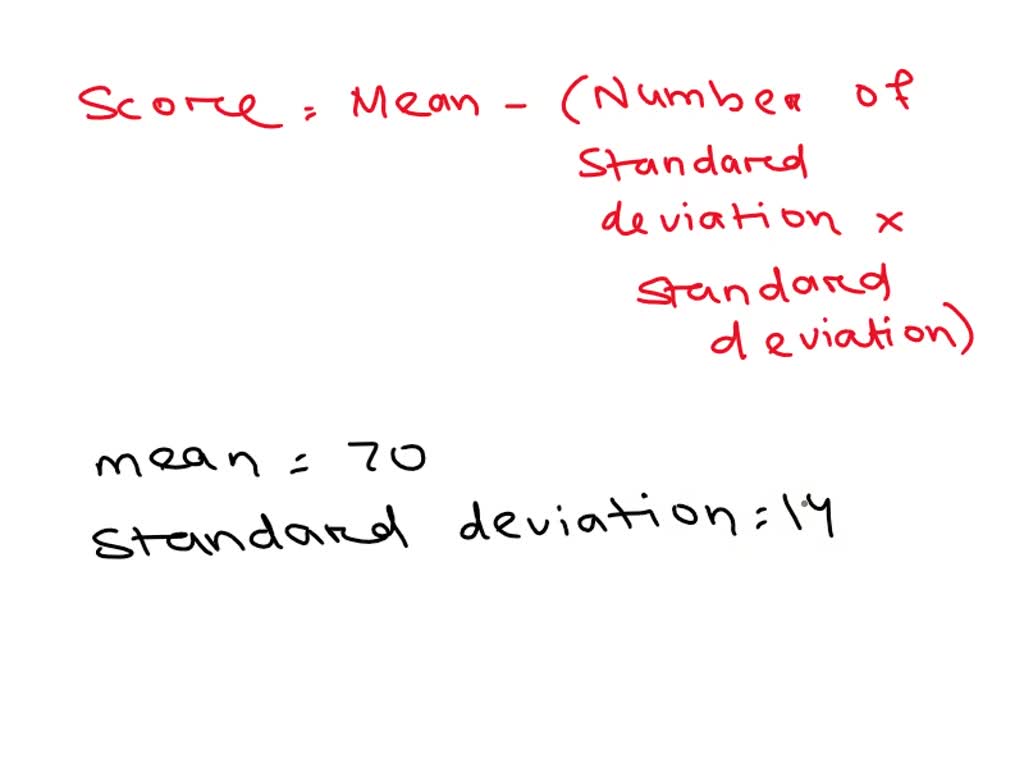 Score = Mean - (Number of
standard
deviation x
standard
deviation)
mean = 70
standard deviation = 14